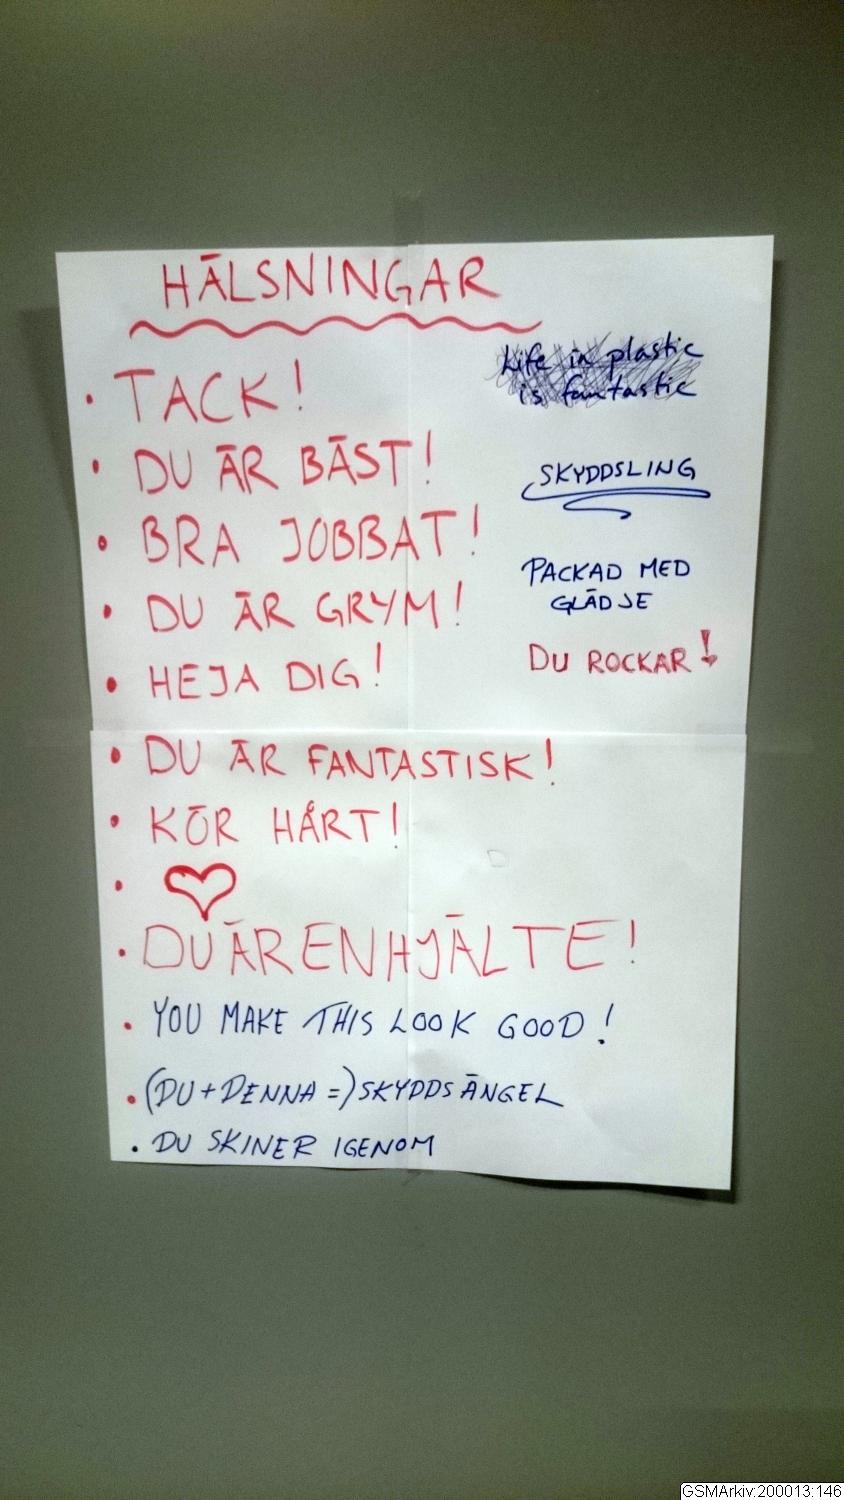 HÄLSNINGAR
• TACK!
• DU ÄR BÄST!
• BRA JOBBAT!
• DU ÄR GRYM!
• HEJA DIG!
• DU ÄR FANTASTISK!
• KÖR HÅRT!
• ♡
• DU ÄR EN HJÄLTE!
• YOU MAKE THIS LOOK GOOD!
• (DU + DENNA =) SKYDDSÄNGEL
• DU SKINER IGENOM
Life in plastic
is fantastic
SKYDDSLING
PACKAD MED
GLÄDJE
DU ROCKAR!
GSMArkiv:200013:146